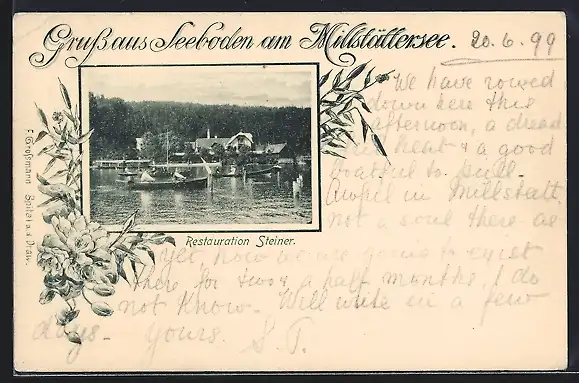 Gruß aus Seeboden am Millstättersee.
20.6.99
We have rowed
down here this
afternoon, a dread
heat & a good
boatful to pull.
Awful in Millstatt,
not a soul there as
yet, how we are going to exist
there for two & a half months, I do
not know. Will write in a few
days. Yours. S. T.
Restauration Steiner.
Spittal a. d. Drau.